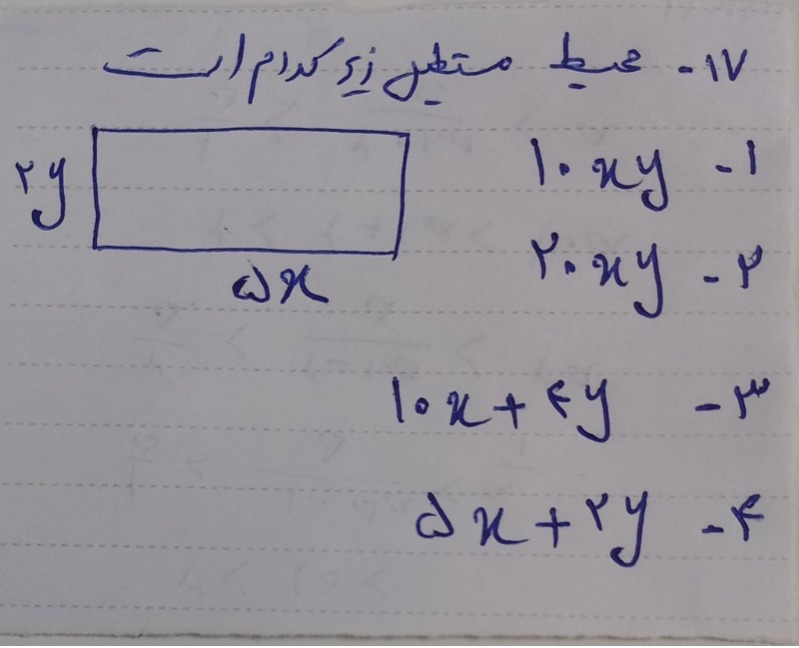 ۱۷- محیط مستطیل زیر کدام است
۱- ۱۰xy
۲y
۲- ۲۰xy
۵x
۳- ۱۰x + ۴y
۴- ۵x + ۲y